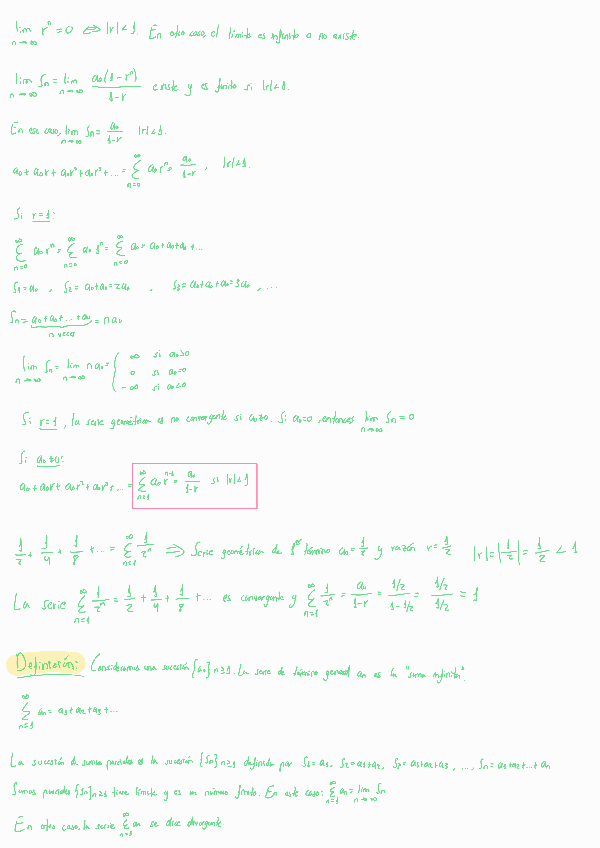 lim n→∞ rⁿ = 0 ⟺ |r| < 1. En otro caso, el límite es infinito o no existe.
lim n→∞ Sn = lim n→∞ a₀(1-rⁿ)/(1-r) existe y es finito si |r|<1.
En ese caso, lim n→∞ Sn = a₀/(1-r) |r|<1.
a₀ + a₀r + a₀r² + a₀r³ + ... = ∑ n=0 ∞ a₀rⁿ = a₀/(1-r), |r|<1.
Si r=1:
∑ n=0 ∞ a₀rⁿ = ∑ n=0 ∞ a₀ 1ⁿ = ∑ n=0 ∞ a₀ = a₀+a₀+a₀+...
S₁=a₀, S₂ = a₀+a₀=2a₀, S₃ = a₀+a₀+a₀=3a₀, ...
Sn = a₀+a₀+...+a₀ = n a₀
n veces
lim n→∞ Sn = lim n→∞ n a₀ = { ∞ si a₀>0
0 si a₀=0
-∞ si a₀<0
Si r=1, la serie geométrica es no convergente si a₀≠0. Si a₀=0, entonces lim n→∞ Sn = 0
Si a₀≠0:
a₀ + a₀r + a₀r² + a₀r³ + ... = ∑ n=1 ∞ a₀rⁿ⁻¹ = a₀/(1-r) si |r|<1
1/2 + 1/4 + 1/8 + ... = ∑ n=1 ∞ 1/2ⁿ ⟹ Serie geométrica de 1er término a₀=1/2 y razón r=1/2 |r|=|1/2|=1/2 < 1
La serie ∑ n=1 ∞ 1/2ⁿ = 1/2 + 1/4 + 1/8 + ... es convergente y ∑ n=1 ∞ 1/2ⁿ = a₀/(1-r) = (1/2)/(1-1/2) = (1/2)/(1/2) = 1
Definición: Consideramos una sucesión {an} n≥1. La serie de término general an es la "suma infinita".
∑ n=1 ∞ an = a₁+a₂+a₃+...
La sucesión de sumas parciales es la sucesión {Sn} n≥1 definida por S₁=a₁, S₂=a₁+a₂, S₃=a₁+a₂+a₃, ..., Sn=a₁+a₂+...+an
Sumas parciales {Sn} n≥1 tiene límite y es un número finito. En este caso: ∑ n=1 ∞ an = lim n→∞ Sn
En otro caso, la serie ∑ n=1 ∞ an se dice divergente